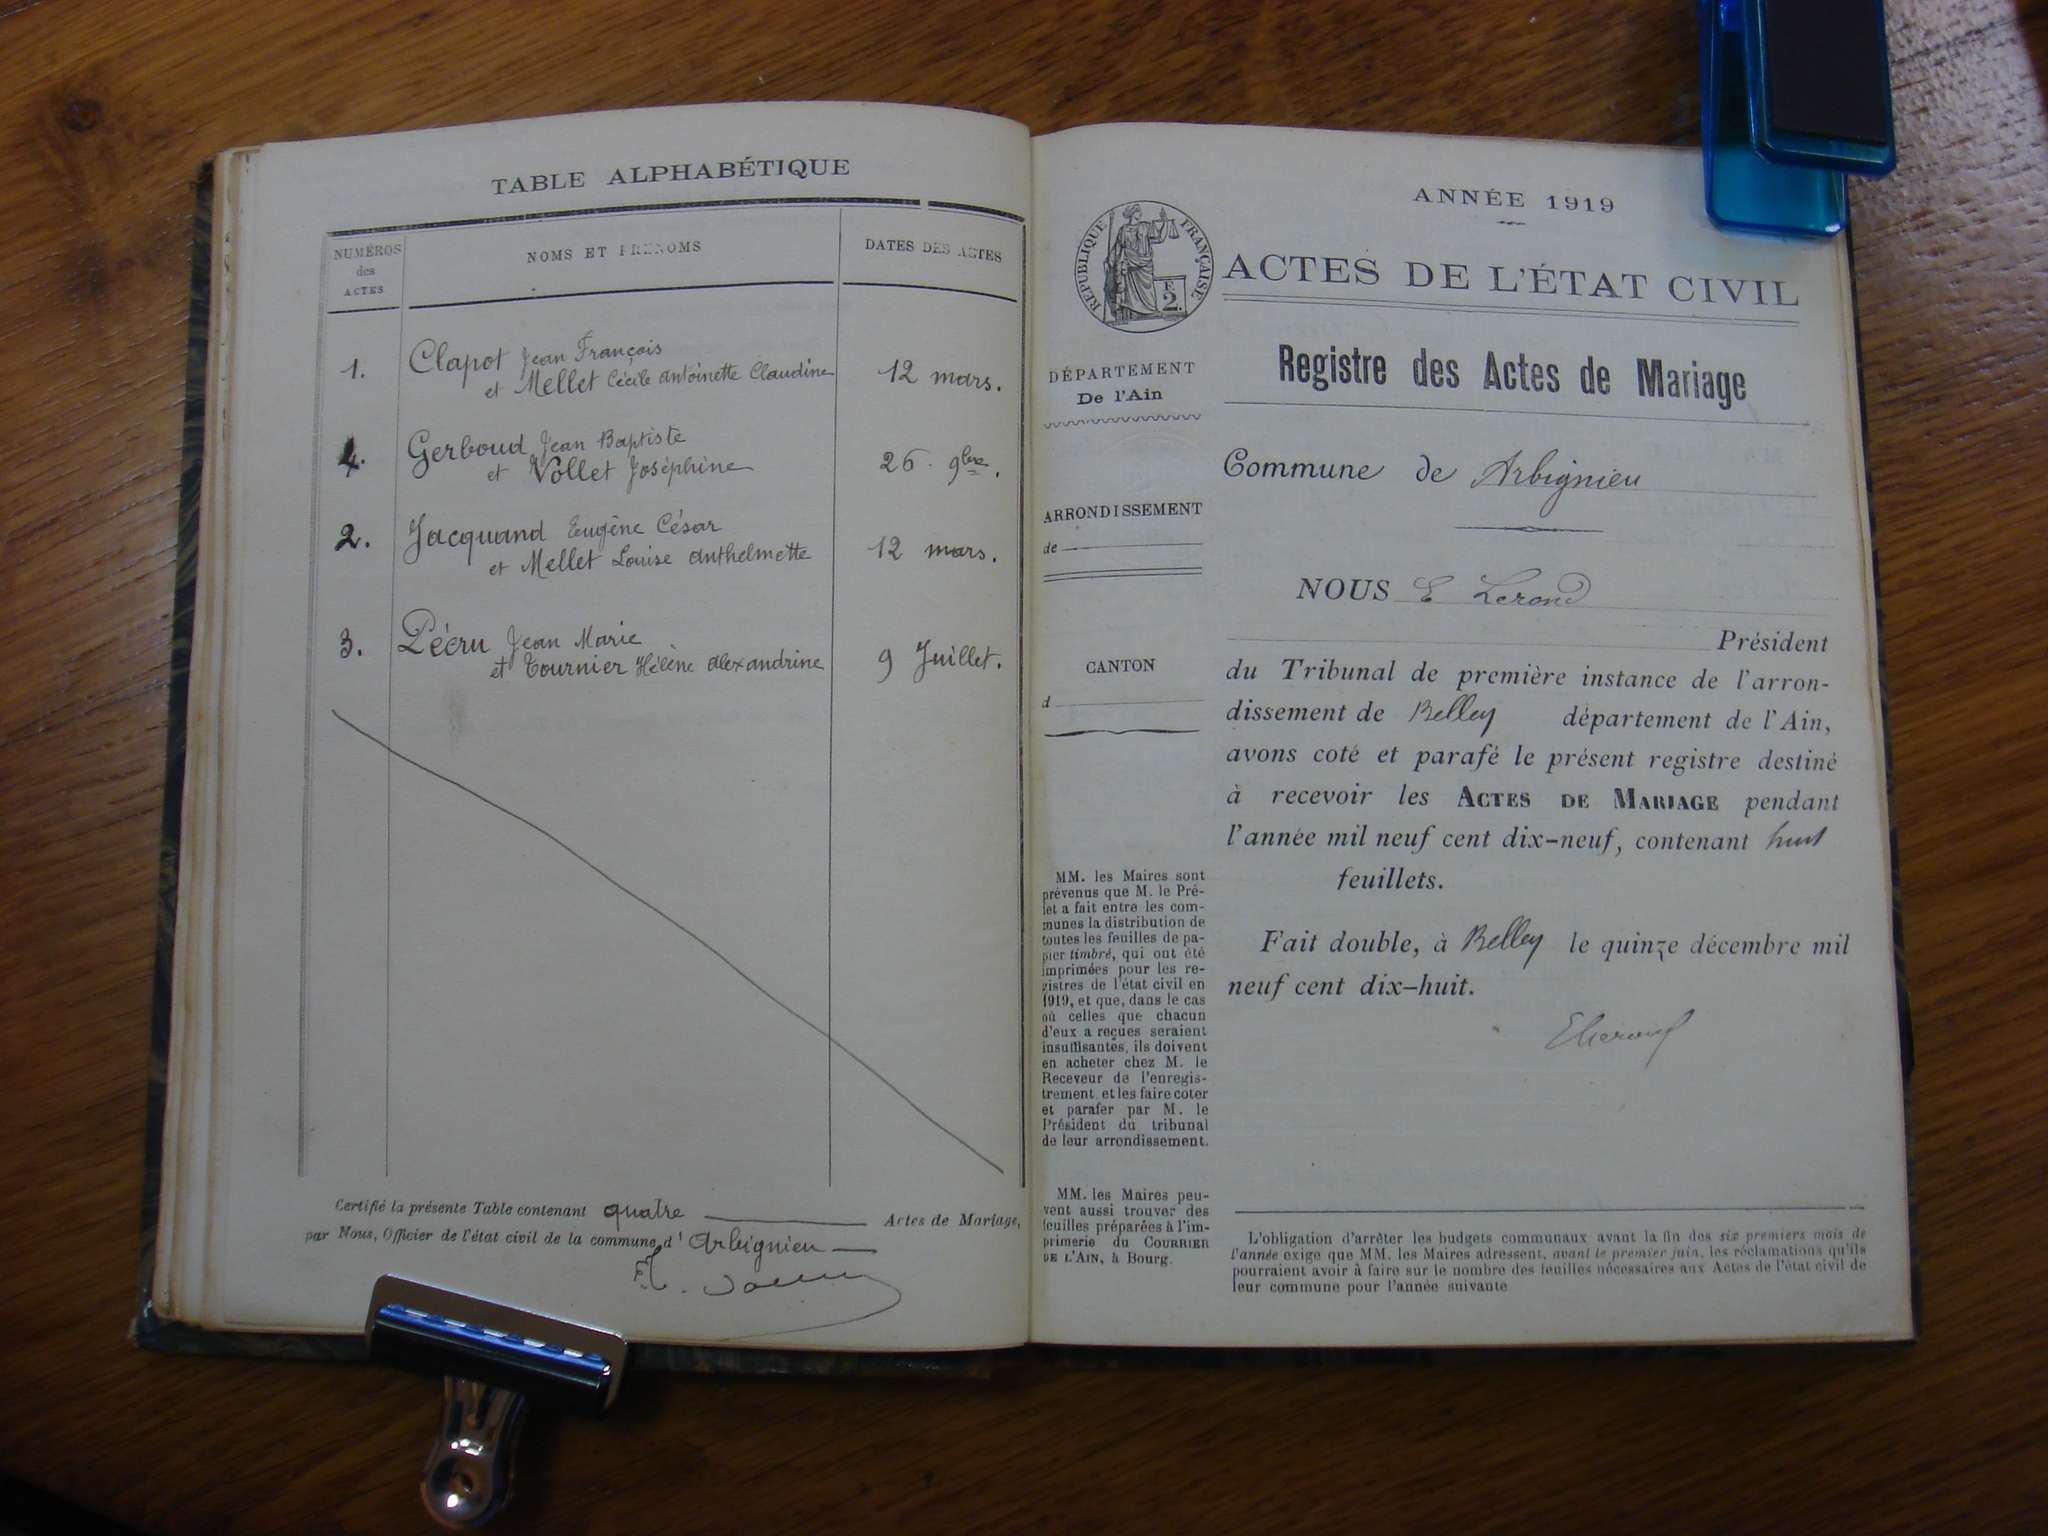 TABLE ALPHABÉTIQUE
NUMÉROS
des
ACTES
NOMS ET PRÉNOMS
DATES DES ACTES
1.
Clapot Jean François
et Mellet Cécile Antoinette Claudine
12 mars.
4.
Gerboud Jean Baptiste
et Vollet Joséphine
26. 9bre.
2.
Jacquand Eugène César
et Mellet Louise Anthelmette
12 mars.
3.
Pécru Jean Marie
et Tournier Hélène Alexandrine
9 Juillet.
Certifié la présente Table contenant quatre Actes de Mariage,
par Nous, Officier de l'état civil de la commune d'Arbignieu
RÉPUBLIQUE FRANÇAISE
E
2.
DÉPARTEMENT
De l'Ain
ARRONDISSEMENT
de
CANTON
d
MM. les Maires sont
prévenus que M. le Pré-
fet a fait entre les com-
munes la distribution de
toutes les feuilles de pa-
pier timbré, qui ont été
imprimées pour les re-
gistres de l'état civil en
1919, et que, dans le cas
où celles que chacun
d'eux a reçues seraient
insuffisantes, ils doivent
en acheter chez M. le
Receveur de l'enregis-
trement et les faire coter
et parafer par M. le
Président du tribunal
de leur arrondissement.
MM. les Maires peu-
vent aussi trouver des
feuilles préparées à l'im-
primerie du COURRIER
DE L'AIN, à Bourg.
ANNÉE 1919
ACTES DE L'ÉTAT CIVIL
Registre des Actes de Mariage
Commune de Arbignieu
NOUS E Lerond
Président
du Tribunal de première instance de l'arron-
dissement de Belley département de l'Ain,
avons coté et parafé le présent registre destiné
à recevoir les ACTES DE MARIAGE pendant
l'année mil neuf cent dix-neuf, contenant huit
feuillets.
Fait double, à Belley le quinze décembre mil
neuf cent dix-huit.
L'obligation d'arrêter les budgets communaux avant la fin des six premiers mois de
l'année exige que MM. les Maires adressent, avant le premier juin, les réclamations qu'ils
pourraient avoir à faire sur le nombre des feuilles nécessaires aux Actes de l'état civil de
leur commune pour l'année suivante.